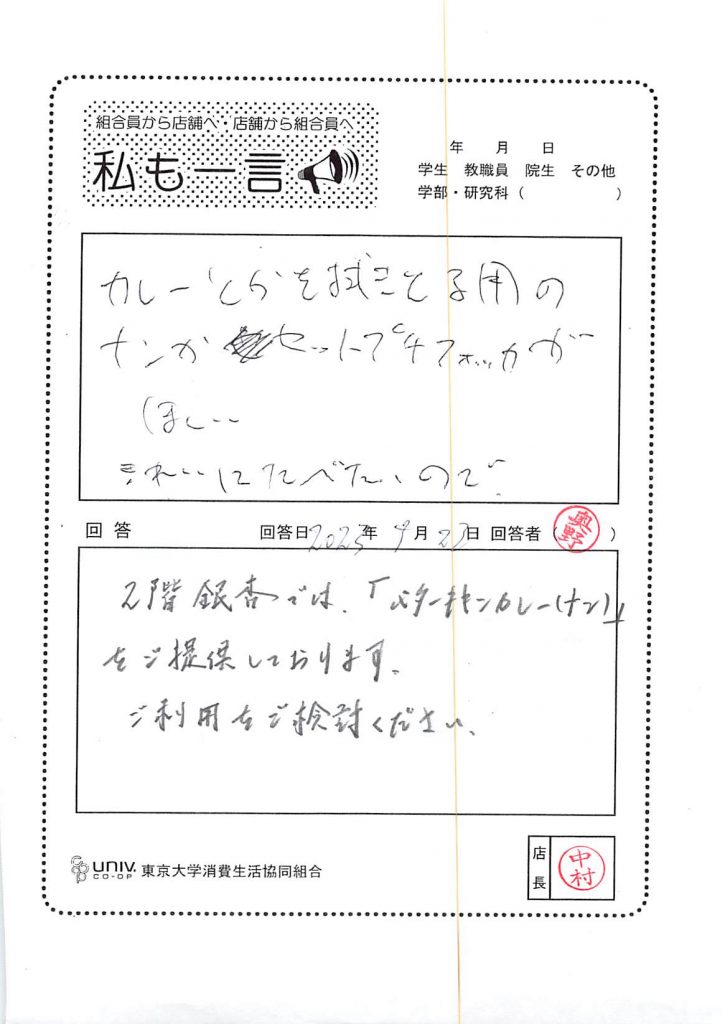 組合員から店舗へ・店舗から組合員へ
私も一言
年 月 日
学生 教職員 院生 その他
学部・研究科（ ）
カレーとかを拭きとる用の
ナンか セットプチフォッカが
ほしい
きれいにたべたいので
回答 回答日2023年9月 日 回答者（奥野）
2階銀杏では、「バターチキンカレー（ナン）」
をご提供しております。
ご利用をご検討ください。
UNIV. CO-OP 東京大学消費生活協同組合
店長 中村